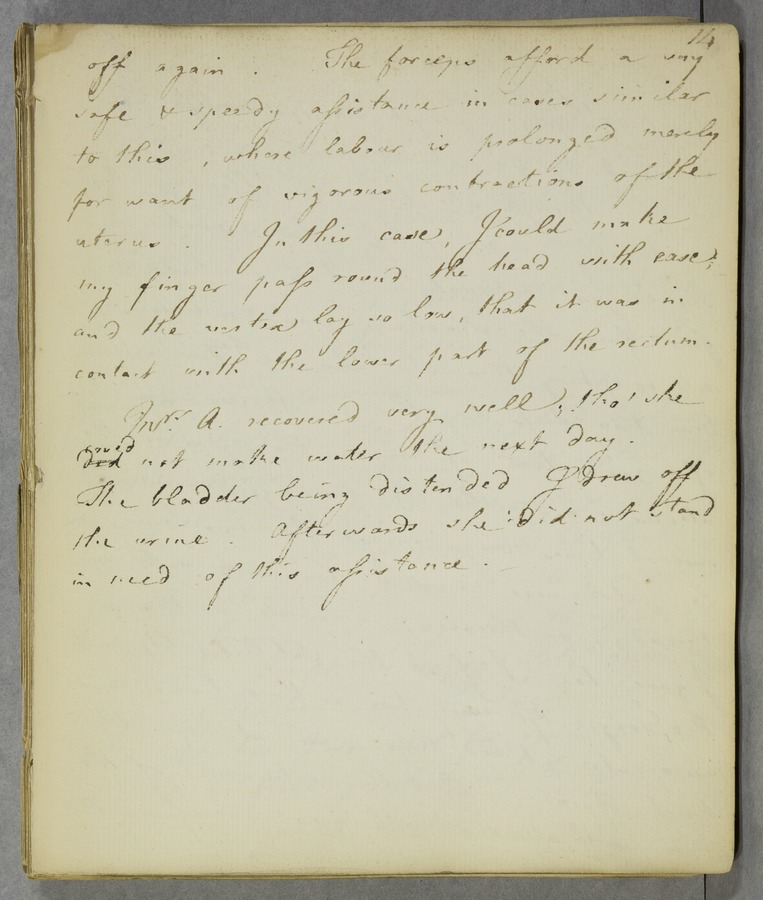 14
off again . The forceps afford a very
safe & speedy assistance in cases similar
to this , where labour is prolonged merely
for want of vigorous contractions of the
uterus . In this case, I could make
my finger pass round the head with ease;
and the vertex lay so low, that it was in
contact with the lower part of the rectum.
Mrs. A. recovered very well, tho' she
could
did not make water the next day.
The bladder being distended I drew off
the urine . Afterwards she did not stand
in need of this assistance .